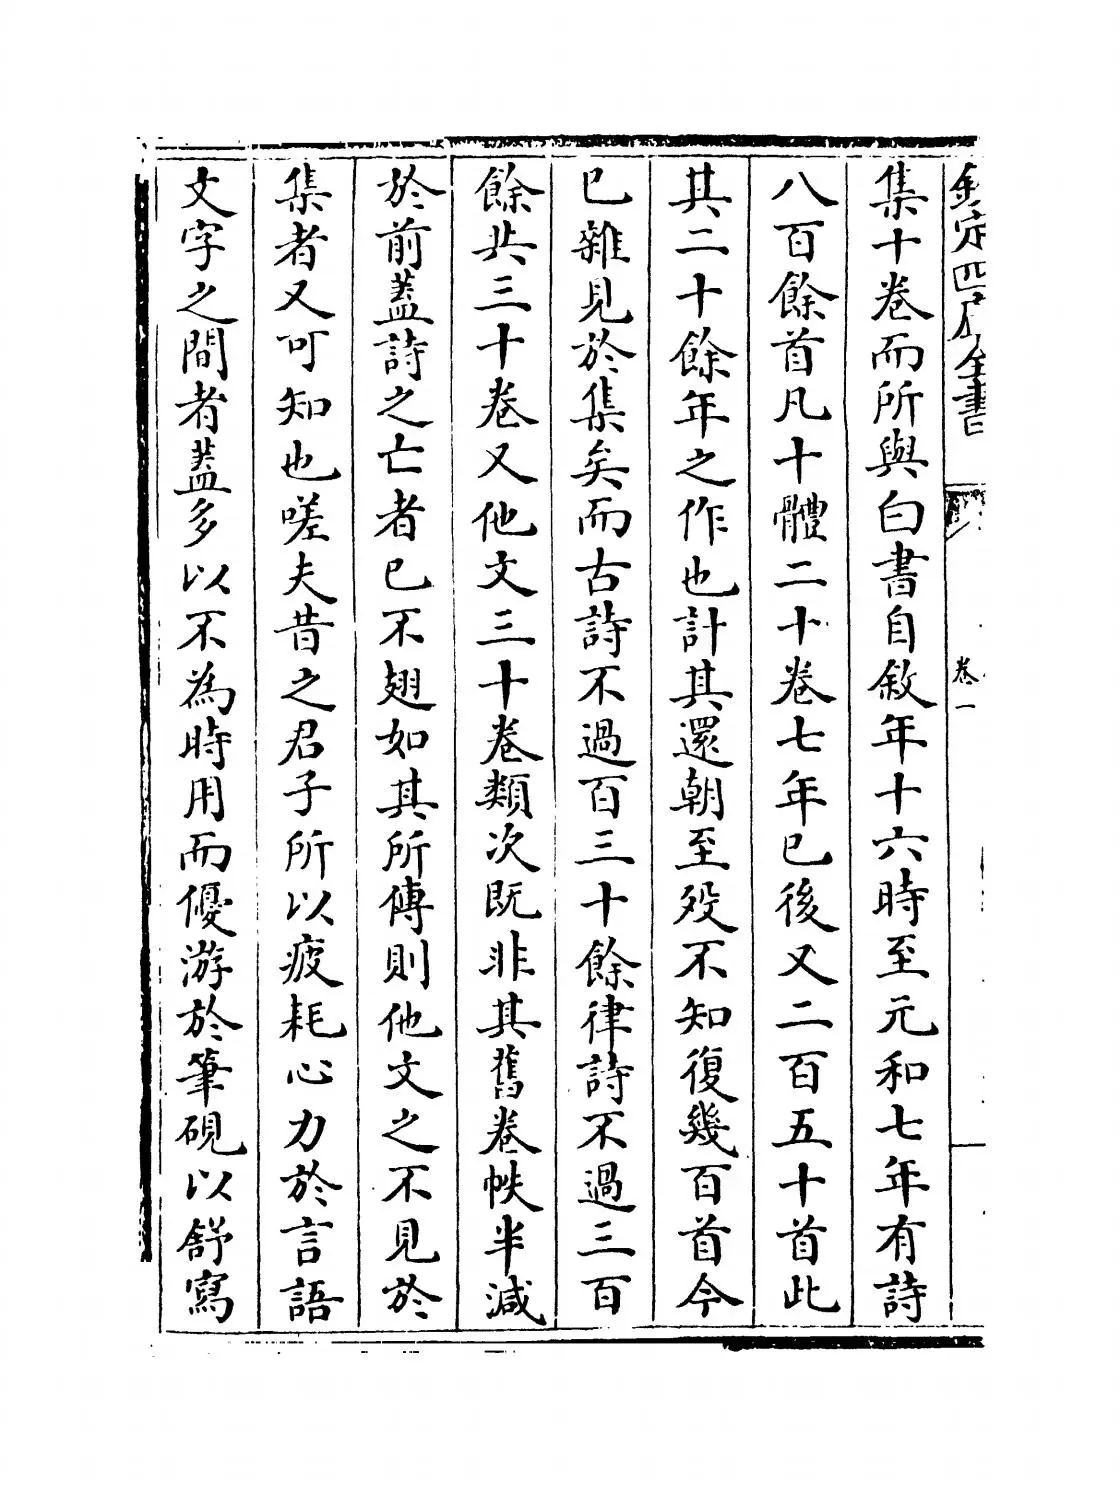 欽定四庫全書
卷一
集十卷而所與白書自敘年十六時至元和七年有詩
八百餘首凡十體二十卷七年已後又二百五十首此
其二十餘年之作也計其還朝至歿不知復幾百首今
已雜見於集矣而古詩不過百三十餘律詩不過三百
餘共三十卷又他文三十卷類次既非其舊卷帙半減
於前蓋詩之亡者已不翅如其所傳則他文之不見於
集者又可知也嗟夫昔之君子所以疲耗心力於言語
文字之間者蓋多以不為時用而優游於筆硯以舒寫